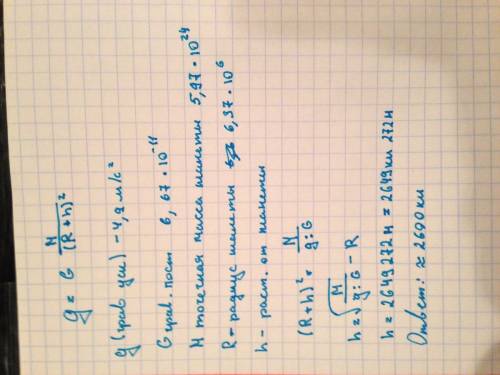 g = G M/(R+h)²
g (грав уск) - 4,9 м/с²
G грав. пост 6,67·10⁻¹¹
M точечная масса планеты 5,97·10²⁴
R - радиус планеты 6,37·10⁶
h - расст. от планеты
(R+h)² = M/g:G
h = √M/g:G - R
h = 2649272м = 2649км 272м
Ответ: ≈ 2600 км